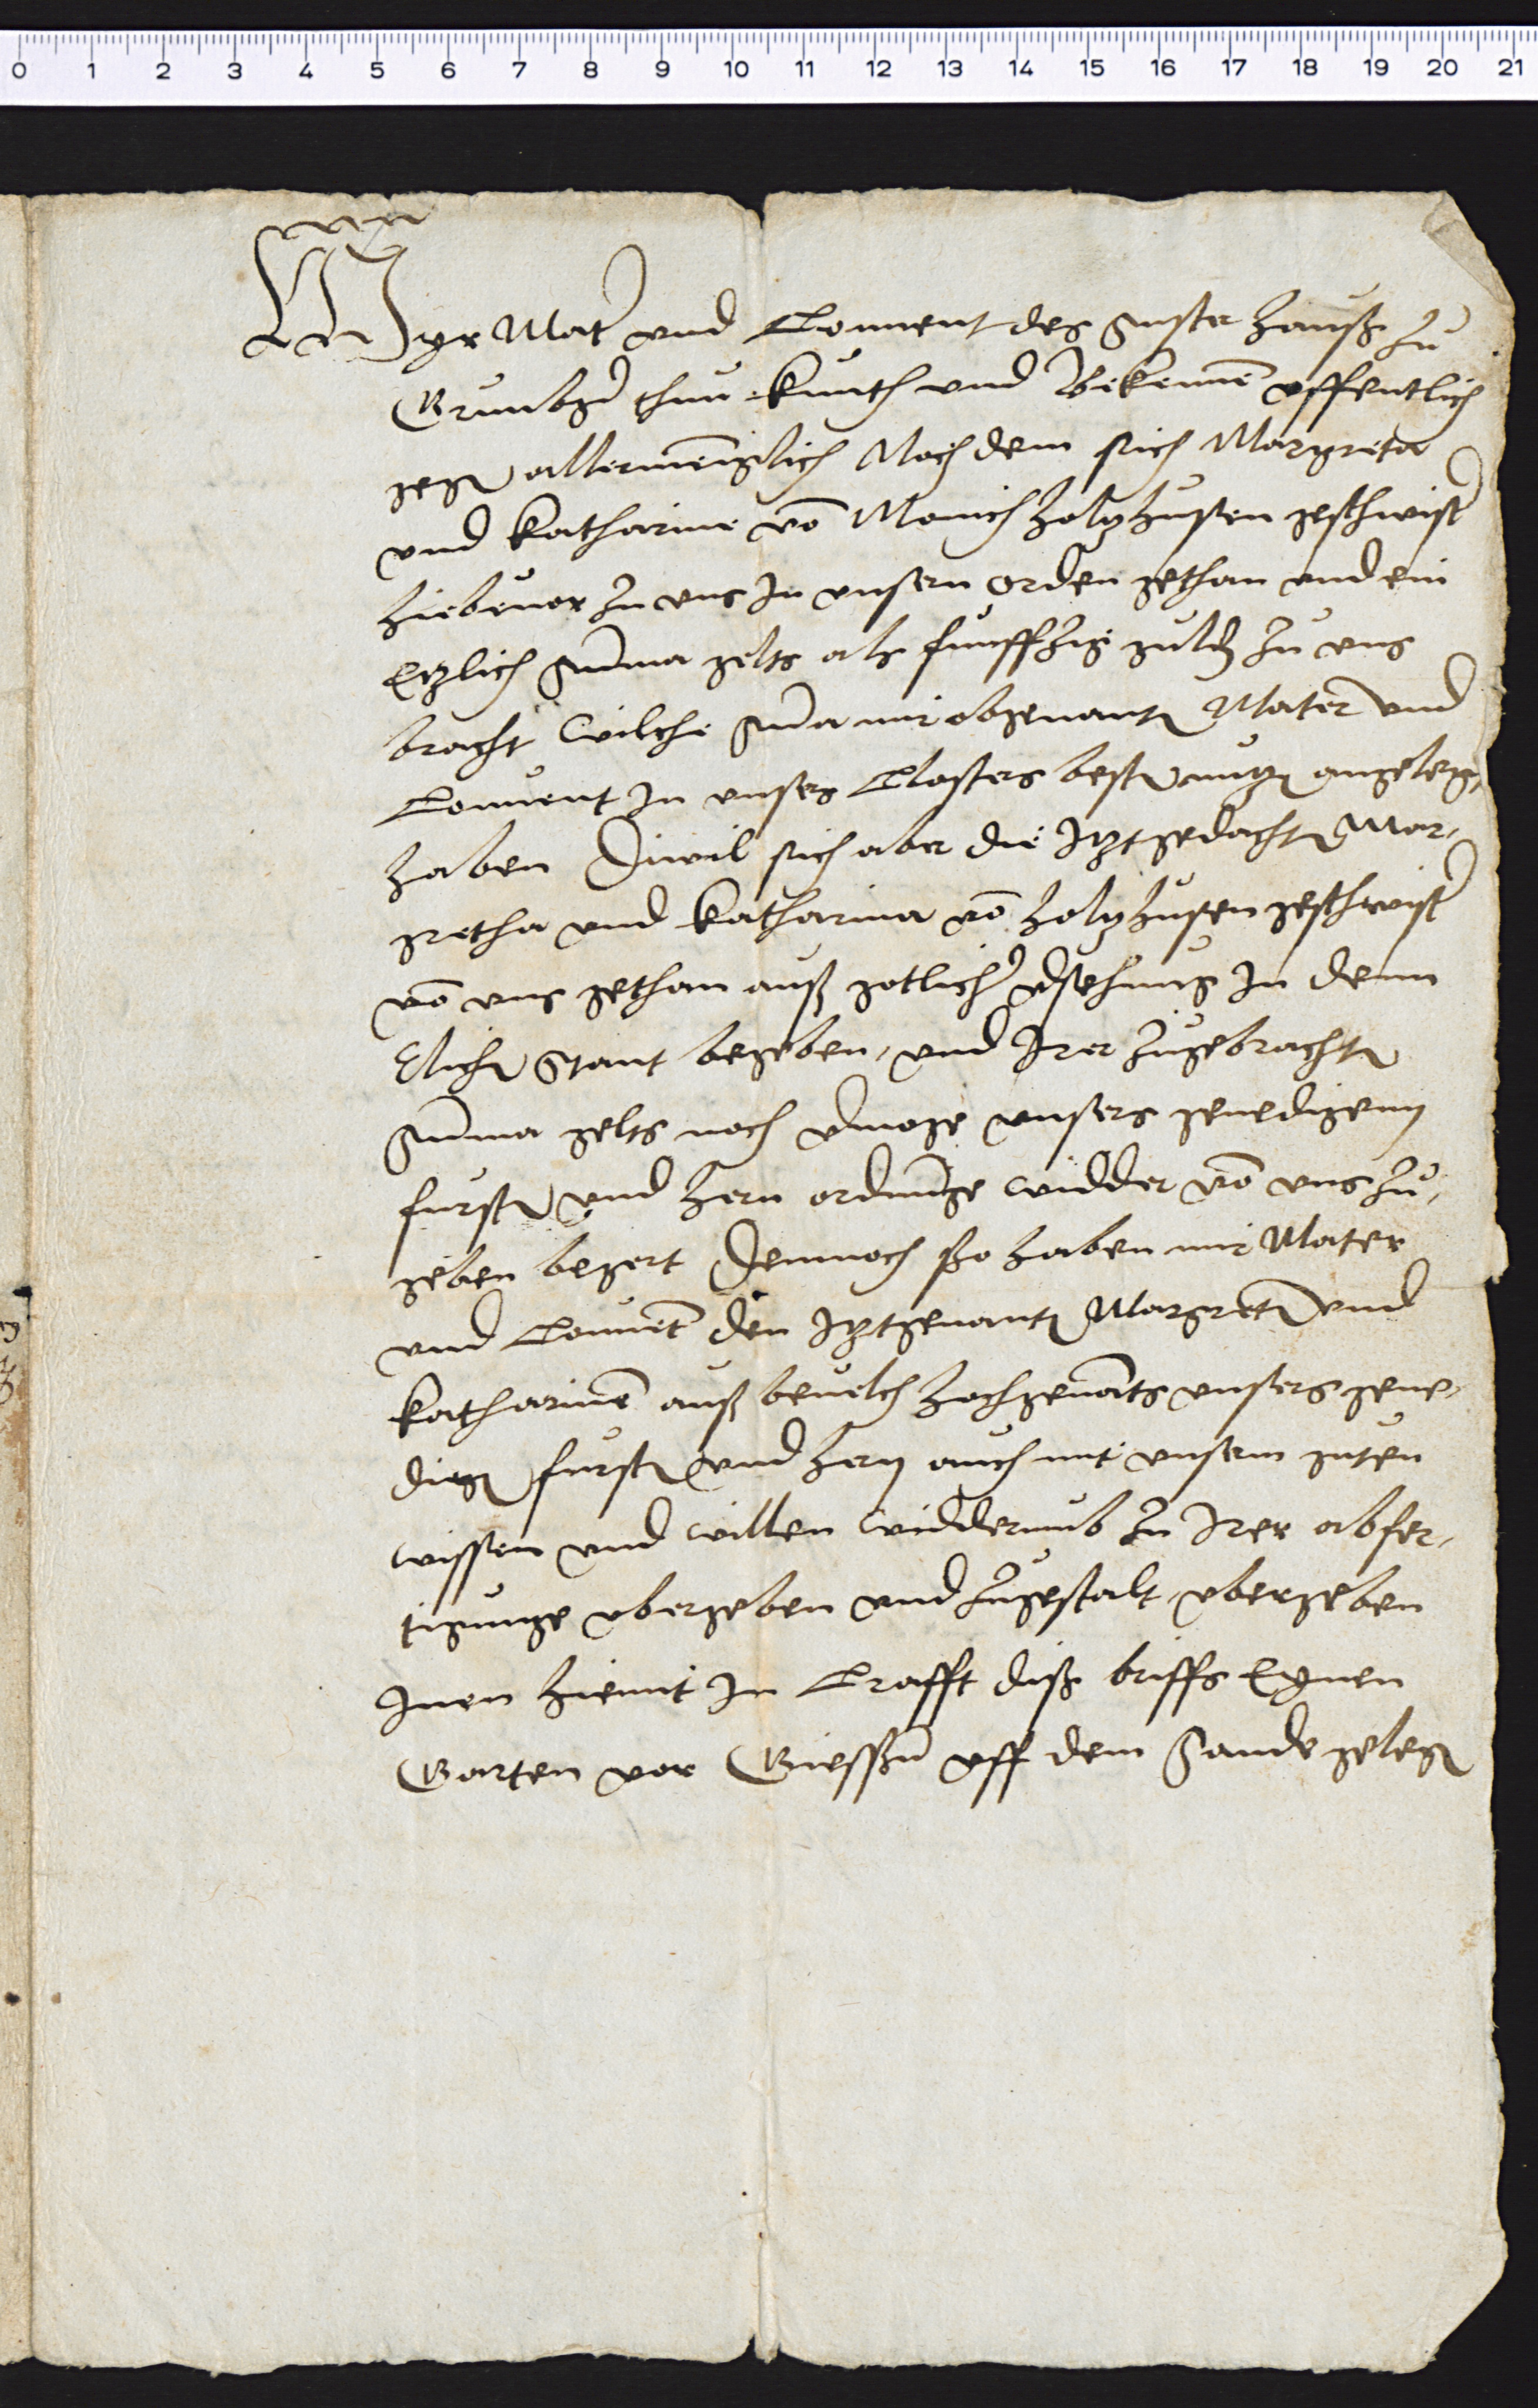 0 1 2 3 4 5 6 7 8 9 10 11 12 13 14 15 16 17 18 19 20 21
Wyr Mater und Convent des suster hauß zu
Grunbergk thun kunth und bekennen offentlich
gegen allermeniglich Nach dem sich Margreta
und Katharine von Monich holtzhusen geschwister
hiebevor zu uns In unsern orden gethan und ein
Etzlich Summa gelts als funffzig gulden zu uns
bracht wilche Summa mir obgenanten Mater und
Convent In unsers Closters besten nutzen angelegt,
haben Diwil sich aber die Itztgedachten Mar-
gretha und Katharina von holtzhusen geschwister
von uns gethan auß gotlicher versehung In denn
Elichen stant begeben, und Irer zugebrachten
Summa gelts nach vermoge unsers genedigenn
fursten und hern ordnunge widder von uns zu-
geben begert Demnach ßo haben mir Mater
und Convent den Itztgenanten Margreten und
Katharinen auß bevelch hochgenants unsers gene-
digen fursten und hern auch mit unserm guten
wissen und willen widderumb zu Irer abfer-
tigunge ubergeben und zugestalt, ubergeben
Inen hiemit In Crafft diß briffs Eynen
Garten vor Giessen uff dem Sande gelegen